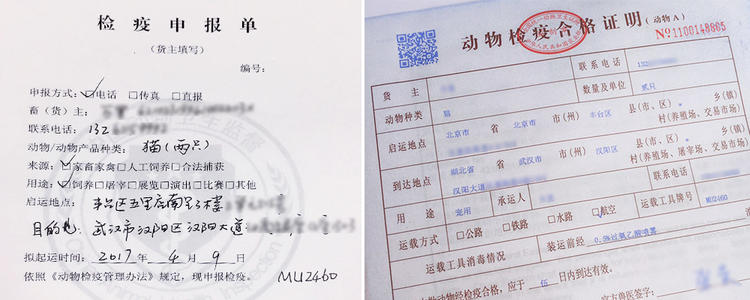 检疫申报单
（货主填写）
编号：
申报方式：☑电话 □传真 □直报
畜（货）主：
联系电话：132
动物/动物产品种类：猫（两只）
来源：☑家畜家禽□人工饲养□合法捕获
用途：☑饲养□屠宰□展览□演出□比赛□其他
启运地点：丰台区五里店南里3楼
目的地：武汉市汉阳区汉阳大道
拟起运时间：2017年4月9日
依照《动物检疫管理办法》规定，现申报检疫。 MU2460
动物检疫合格证明（动物A）
№1100148865
货主
联系电话 132
动物种类 猫 数量及单位 贰只
启运地点 北京市 省 北京市 市(州) 丰台区 县(市、区) 乡(镇)
村(养殖场、交易市场)
到达地点 湖北省 省 武汉市 市(州) 汉阳区 县(市、区) 乡(镇)
汉阳大道 村(养殖场、屠宰场、交易市场)
用途 宠用 承运人 联系电话
运载方式 □公路 □铁路 □水路 ☑航空 运载工具牌号 MU2460
运载工具消毒情况 装运前经 0.5%过氧乙酸喷雾
动物经检疫合格，应于 伍 日内到达有效。
官方兽医签字：